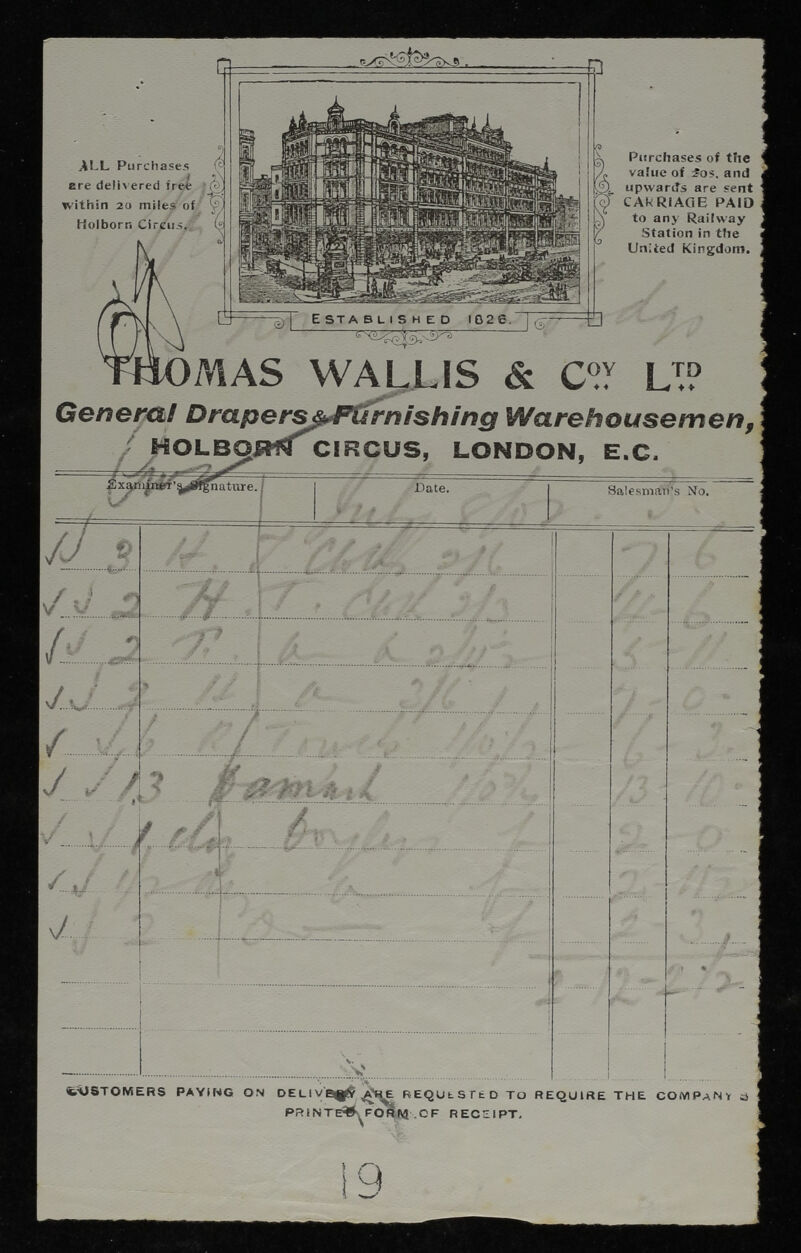 ALL Purchases
are delivered free
within 20 miles of
Holborn Circus.
Purchases of the
value of 20s. and
upwards are sent
CARRIAGE PAID
to any Railway
Station in the
United Kingdom.
ESTABLISHED 1826.
THOMAS WALLIS & COY LTD
General Drapers & Furnishing Warehousemen,
HOLBORN CIRCUS, LONDON, E.C.
Examiner's Signature. Date. Salesman's No.
July 8/02 3
3 H. T. Cloths 2/6 7-6
2 H. T. Cloth 2/3 4-6
2 5-11
2 H 3/6 7-0
6 Towels 1/0½ 6 3
13 Damask 13-10
1 2-0
1/2 2-
2 2-3
2-12-2½
CUSTOMERS PAYING ON DELIVERY ARE REQUESTED TO REQUIRE THE COMPANY'S
PRINTED FORM OF RECEIPT.
19